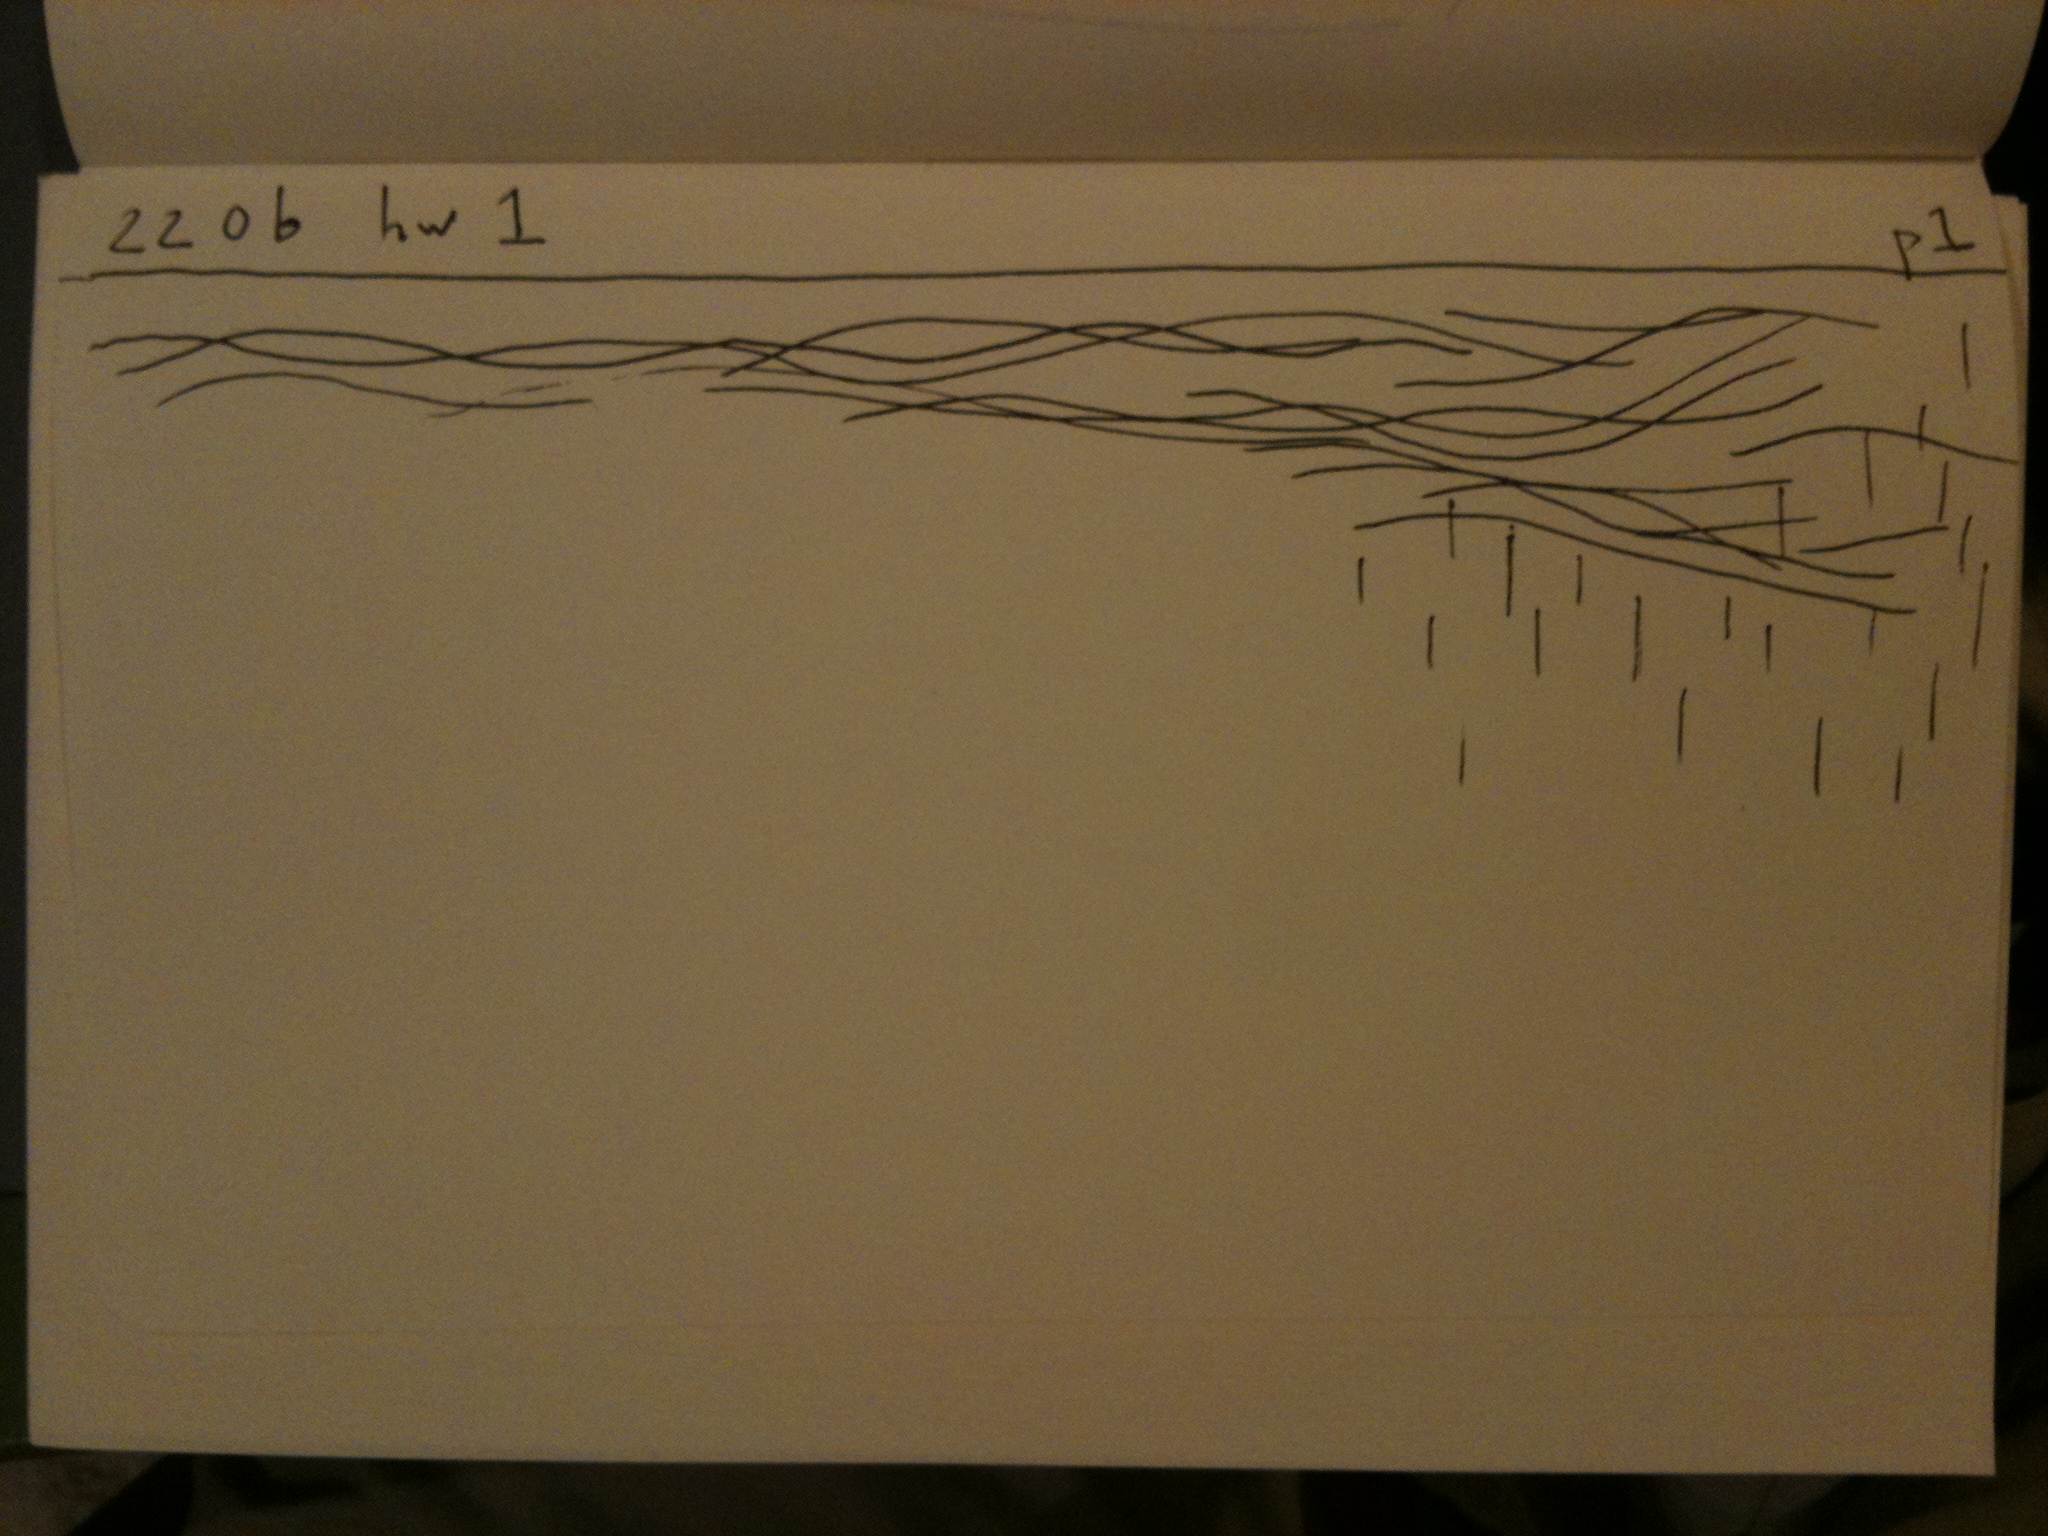 220b hw 1 p1